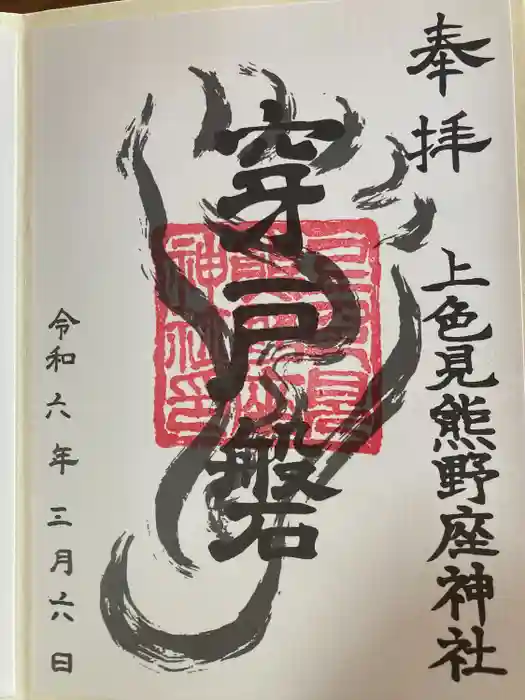 奉拝
上色見熊野座神社
穿戸ノ磐
令和六年三月六日